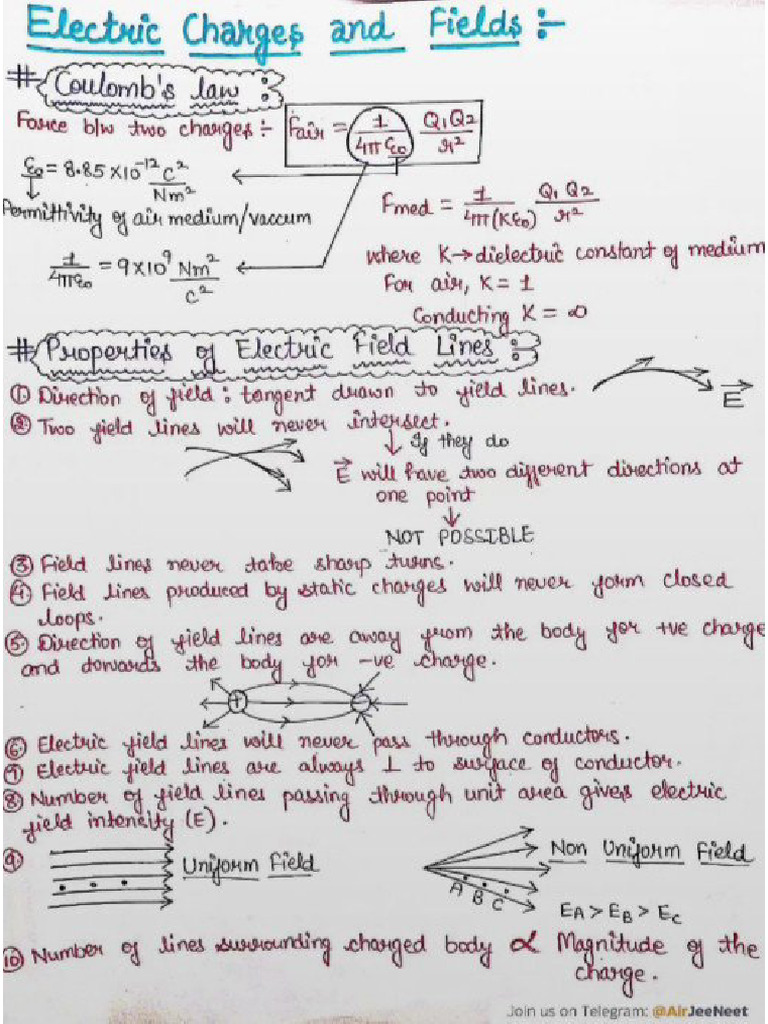 Electric Charges and Fields :-
# Coulomb's law :-
Force b/w two charges :- Fair = 1/4πε0 Q1Q2/r²
ε0 = 8.85 x10⁻¹² C²/Nm²
Permittivity of air medium/vaccum
Fmed = 1/4π(Kε0) Q1Q2/r²
1/4πε0 = 9x10⁹ Nm²/C²
where K→dielectric constant of medium
For air, K = 1
Conducting K = ∞
# Properties of Electric Field Lines :-
① Direction of field : tangent drawn to field lines.
E⃗
② Two field lines will never intersect.
↓ If they do
E⃗ will have two different directions at
one point
↓
NOT POSSIBLE
③ Field lines never take sharp turns.
④ Field lines produced by static charges will never form closed
loops.
⑤ Direction of field lines are away from the body for +ve charge
and towards the body for -ve charge.
+ -
⑥ Electric field lines will never pass through conductors.
⑦ Electric field lines are always ⊥ to surface of conductor.
⑧ Number of field lines passing through unit area gives electric
field intensity (E).
⑨ Uniform Field
Non Uniform Field
A B C
EA > EB > EC
⑩ Number of lines surrounding charged body ∝ Magnitude of the
charge.
Join us on Telegram: @AirJeeNeet